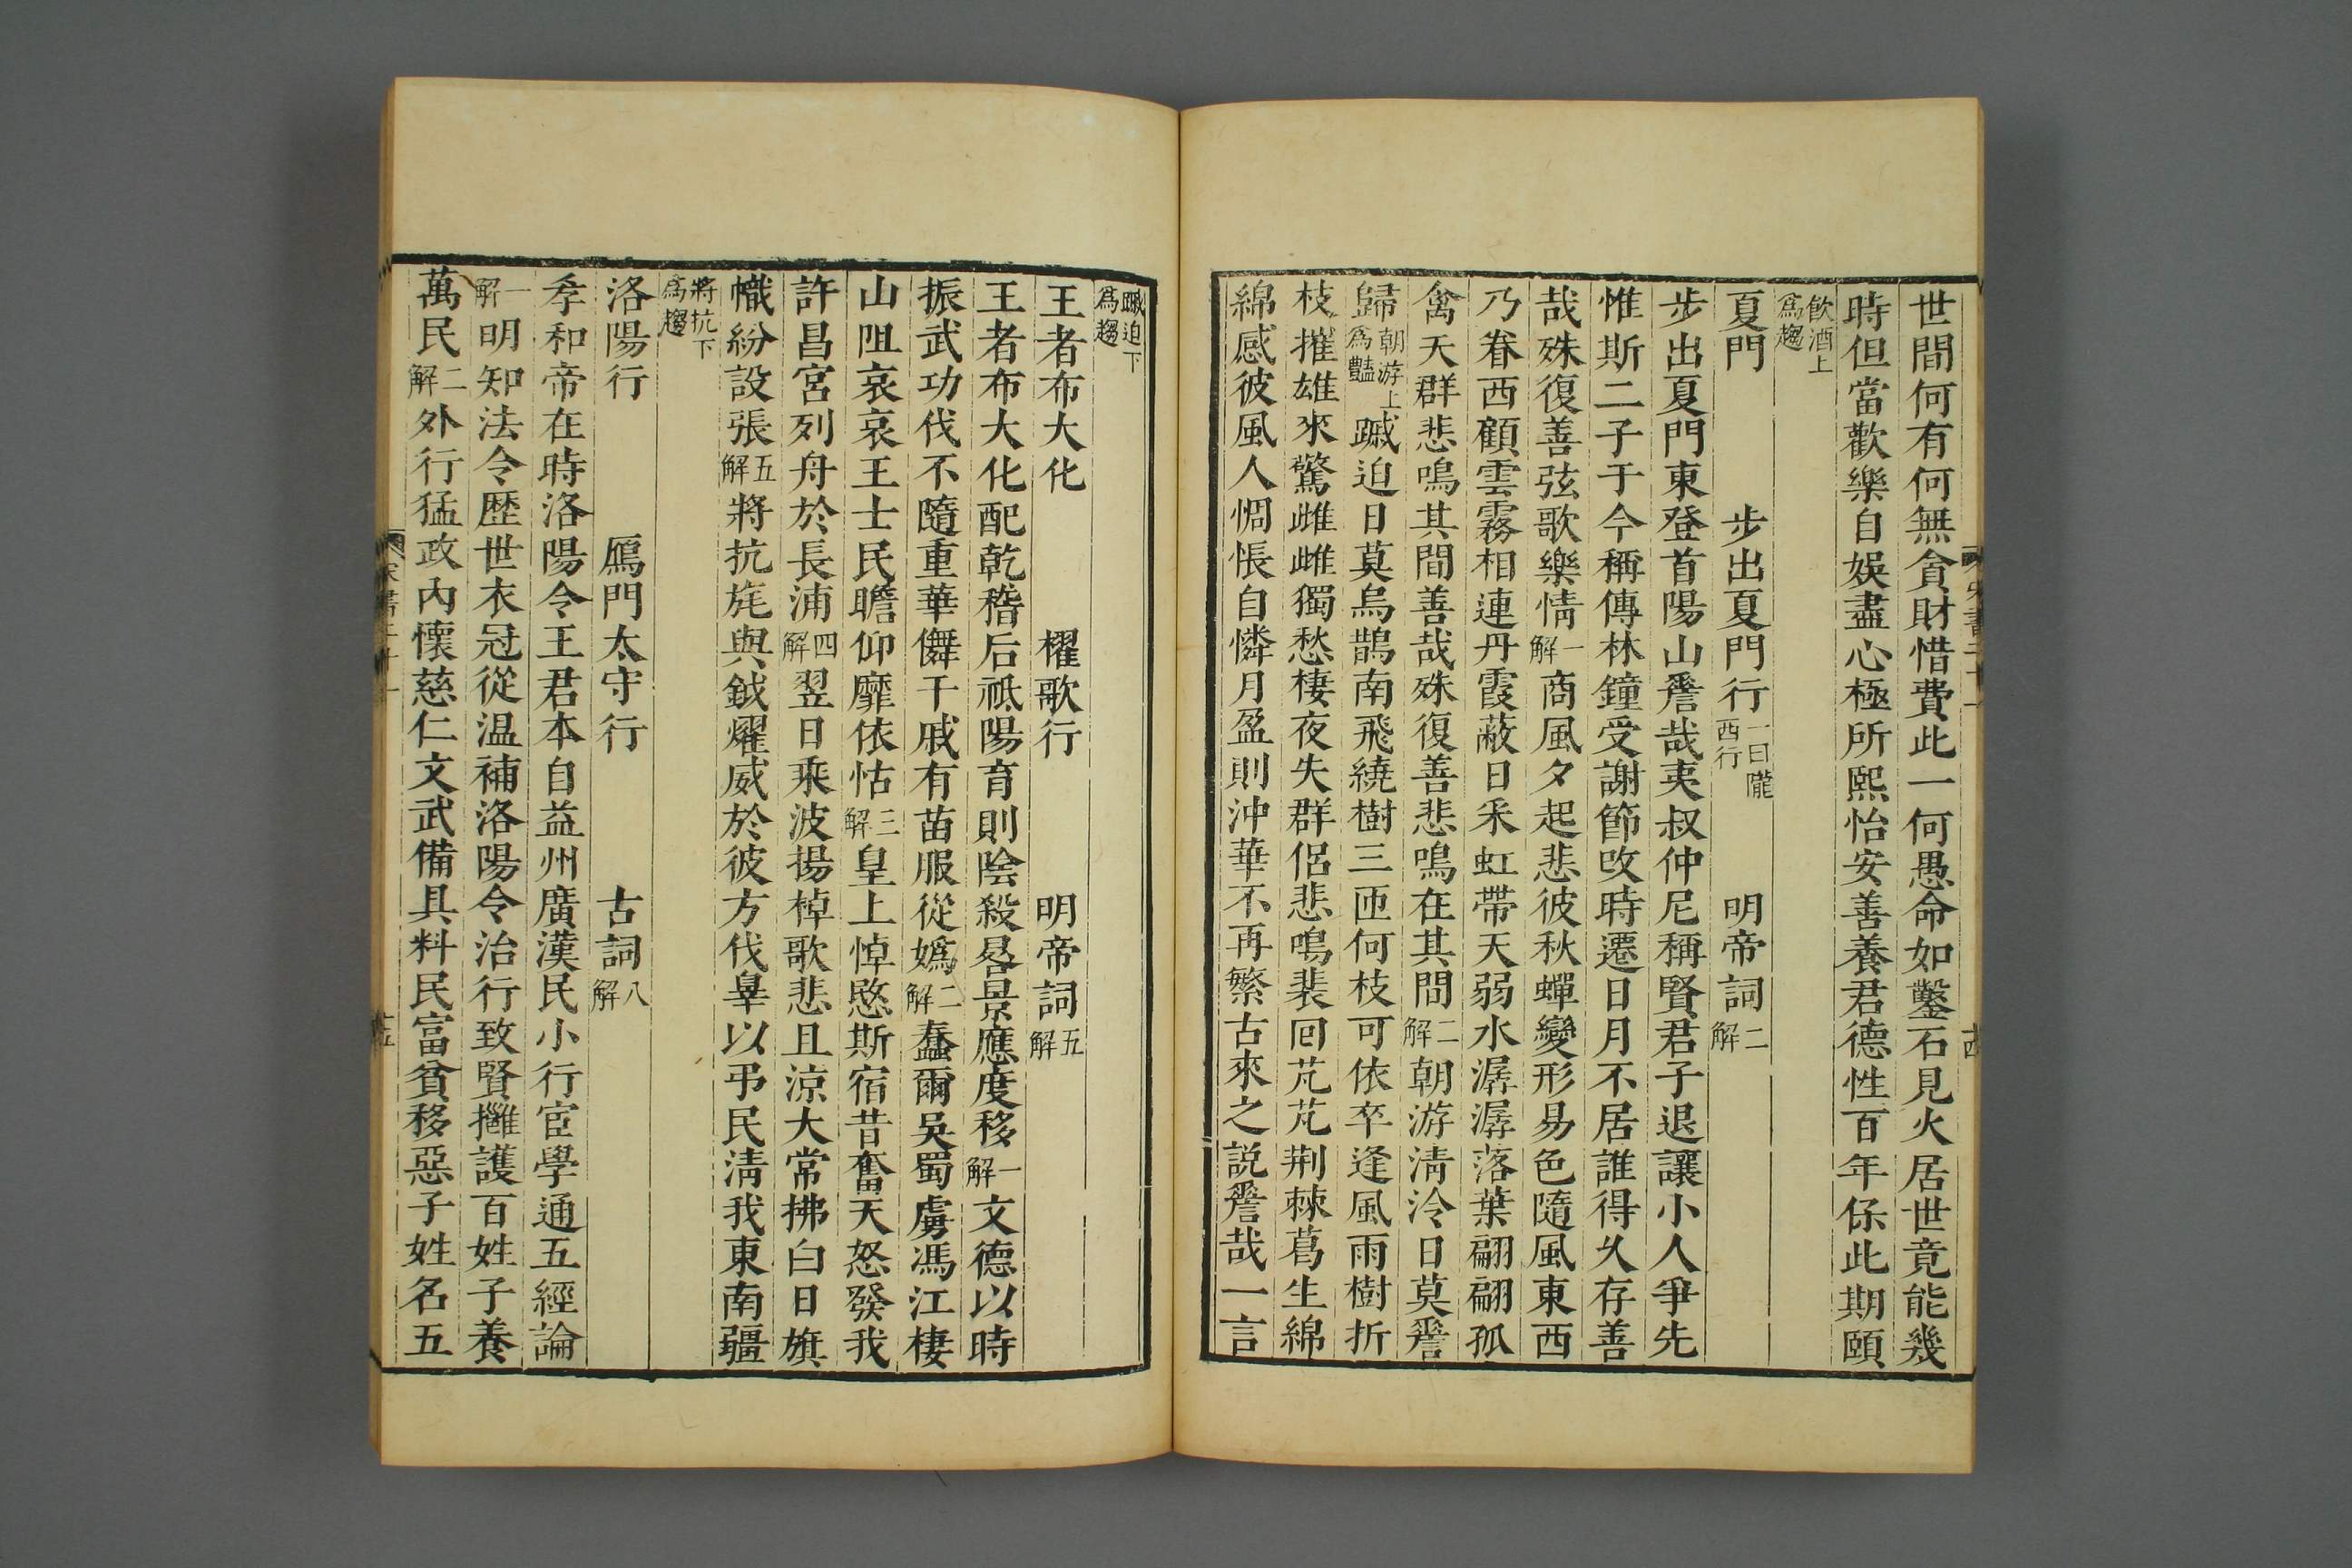 世間何有何無貪財惜費此一何愚命如鑿石見火居世竟能幾
時但當歡樂自娛盡心極所熙怡安善養君德性百年保此期頤
飲酒上為趨
夏門 步出夏門行一曰隴西行 明帝詞二解
步出夏門東登首陽山嗟哉夷叔仲尼稱賢君子退讓小人爭先
惟斯二子于今稱傳林鐘受謝節改時遷日月不居誰得久存善
哉殊復善弦歌樂情一解商風夕起悲彼秋蟬變形易色隨風東西
乃眷西顧雲霧相連丹霞蔽日采虹帶天弱水潺潺落葉翩翩孤
禽天群悲鳴其間善哉殊復善悲鳴在其間二解朝游清泠日莫嗟
歸朝游上為豔蹴迫日莫烏鵲南飛繞樹三匝何枝可依卒逢風雨樹折
枝摧雄來驚雌雌獨愁棲夜失群侶悲鳴裴回芃芃荆棘葛生綿
綿感彼風人惆悵自憐月盈則沖華不再繁古來之説嗟哉一言
蹴迫下為趨
王者布大化 櫂歌行 明帝詞五解
王者布大化配乾稽后祗陽育則陰殺晷景應度移一解文德以時
振武功伐不隨重華儛干戚有苗服從媯二解蠢爾吳蜀虜馮江棲
山阻哀哀王士民瞻仰靡依怙三解皇上悼愍斯宿昔奮天怒發我
許昌宮列舟於長浦四解翌日乘波揚棹歌悲且涼大常拂白日旗
幟紛設張五解將抗旄與鉞燿威於彼方伐辠以弔民清我東南疆
將抗下為趨
洛陽行 鴈門太守行 古詞八解
孝和帝在時洛陽令王君本自益州廣漢民小行宦學通五經論
一解明知法令歷世衣冠從温補洛陽令治行致賢擁護百姓子養
萬民二解外行猛政內懷慈仁文武備具料民富貧移惡子姓名五